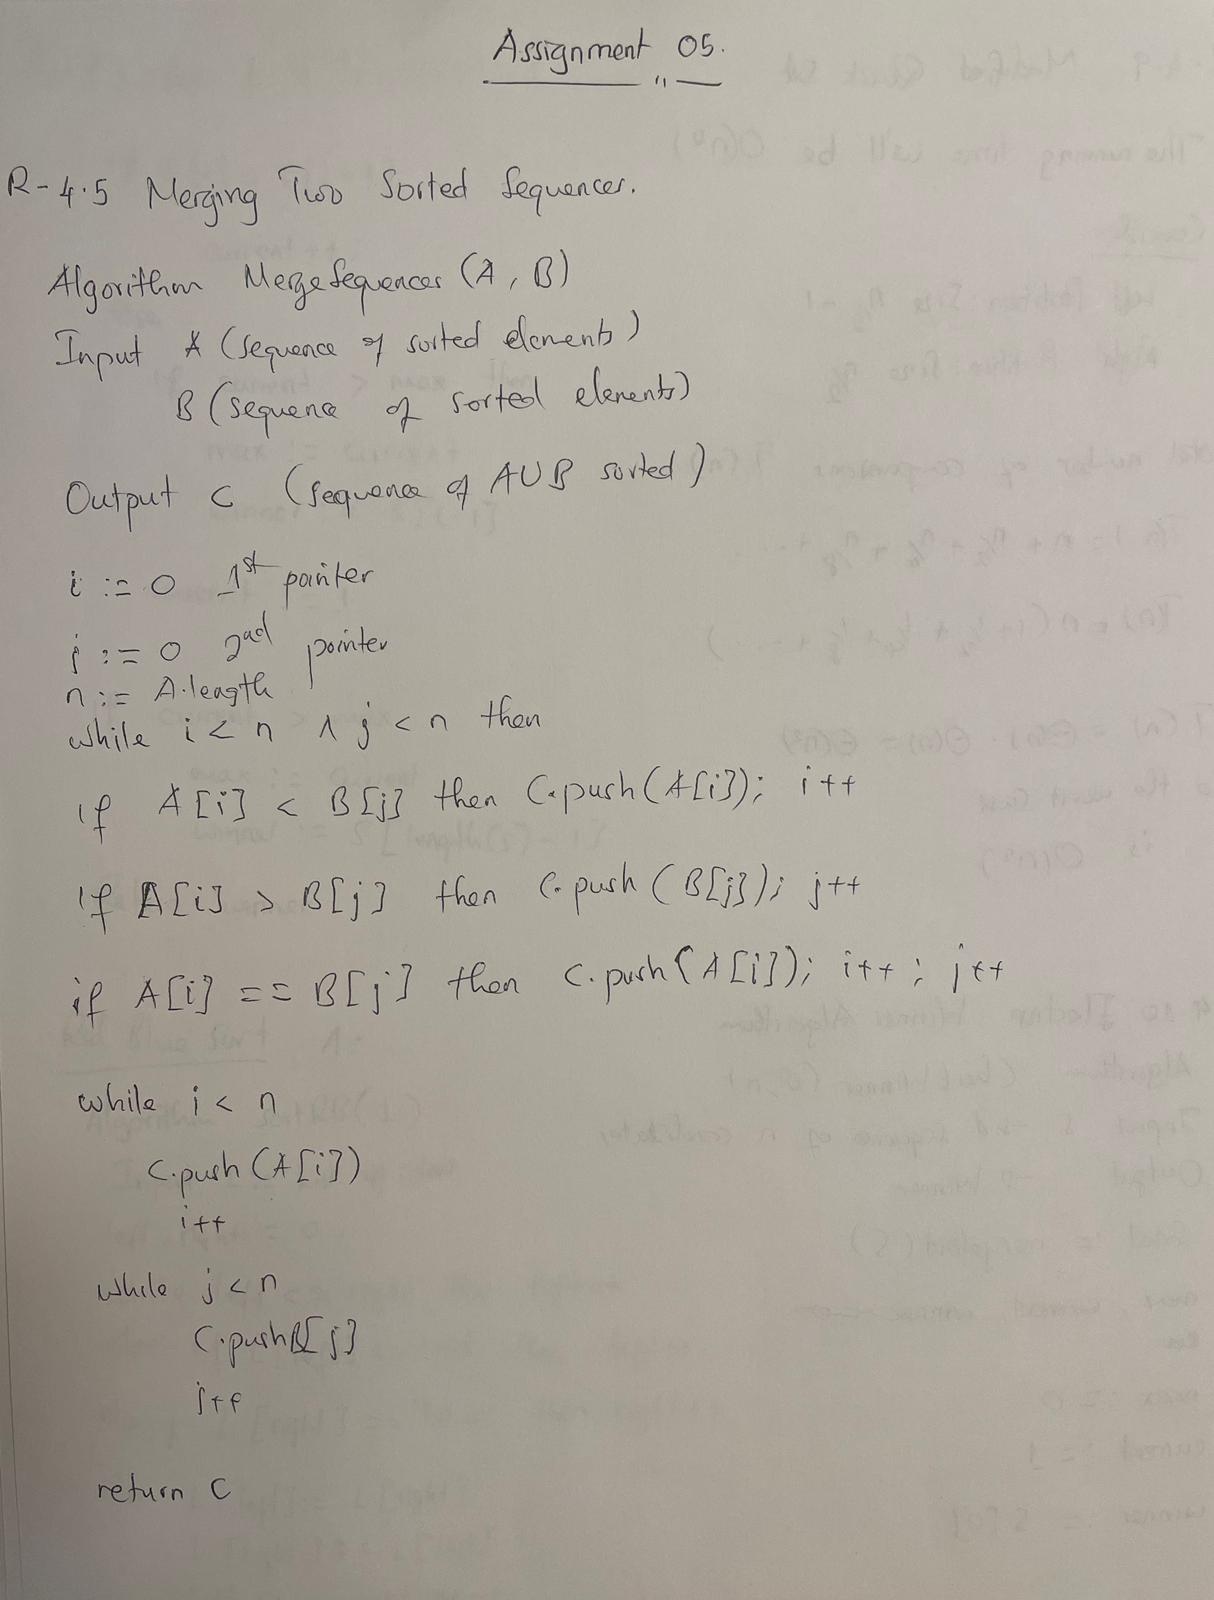 Assignment 05.
R-4.5 Merging Two Sorted Sequences.
Algorithm MergeSequences (A, B)
Input A (sequence of sorted elements)
B (sequence of sorted elements)
Output C (sequence of A∪B sorted)
i := 0 1st pointer
j := 0 2nd pointer
n := A.length
while i < n ∧ j < n then
if A[i] < B[j] then C.push(A[i]); i++
if A[i] > B[j] then C.push(B[j]); j++
if A[i] == B[j] then C.push(A[i]); i++; j++
while i < n
C.push(A[i])
i++
while j < n
C.push B[j]
j++
return C